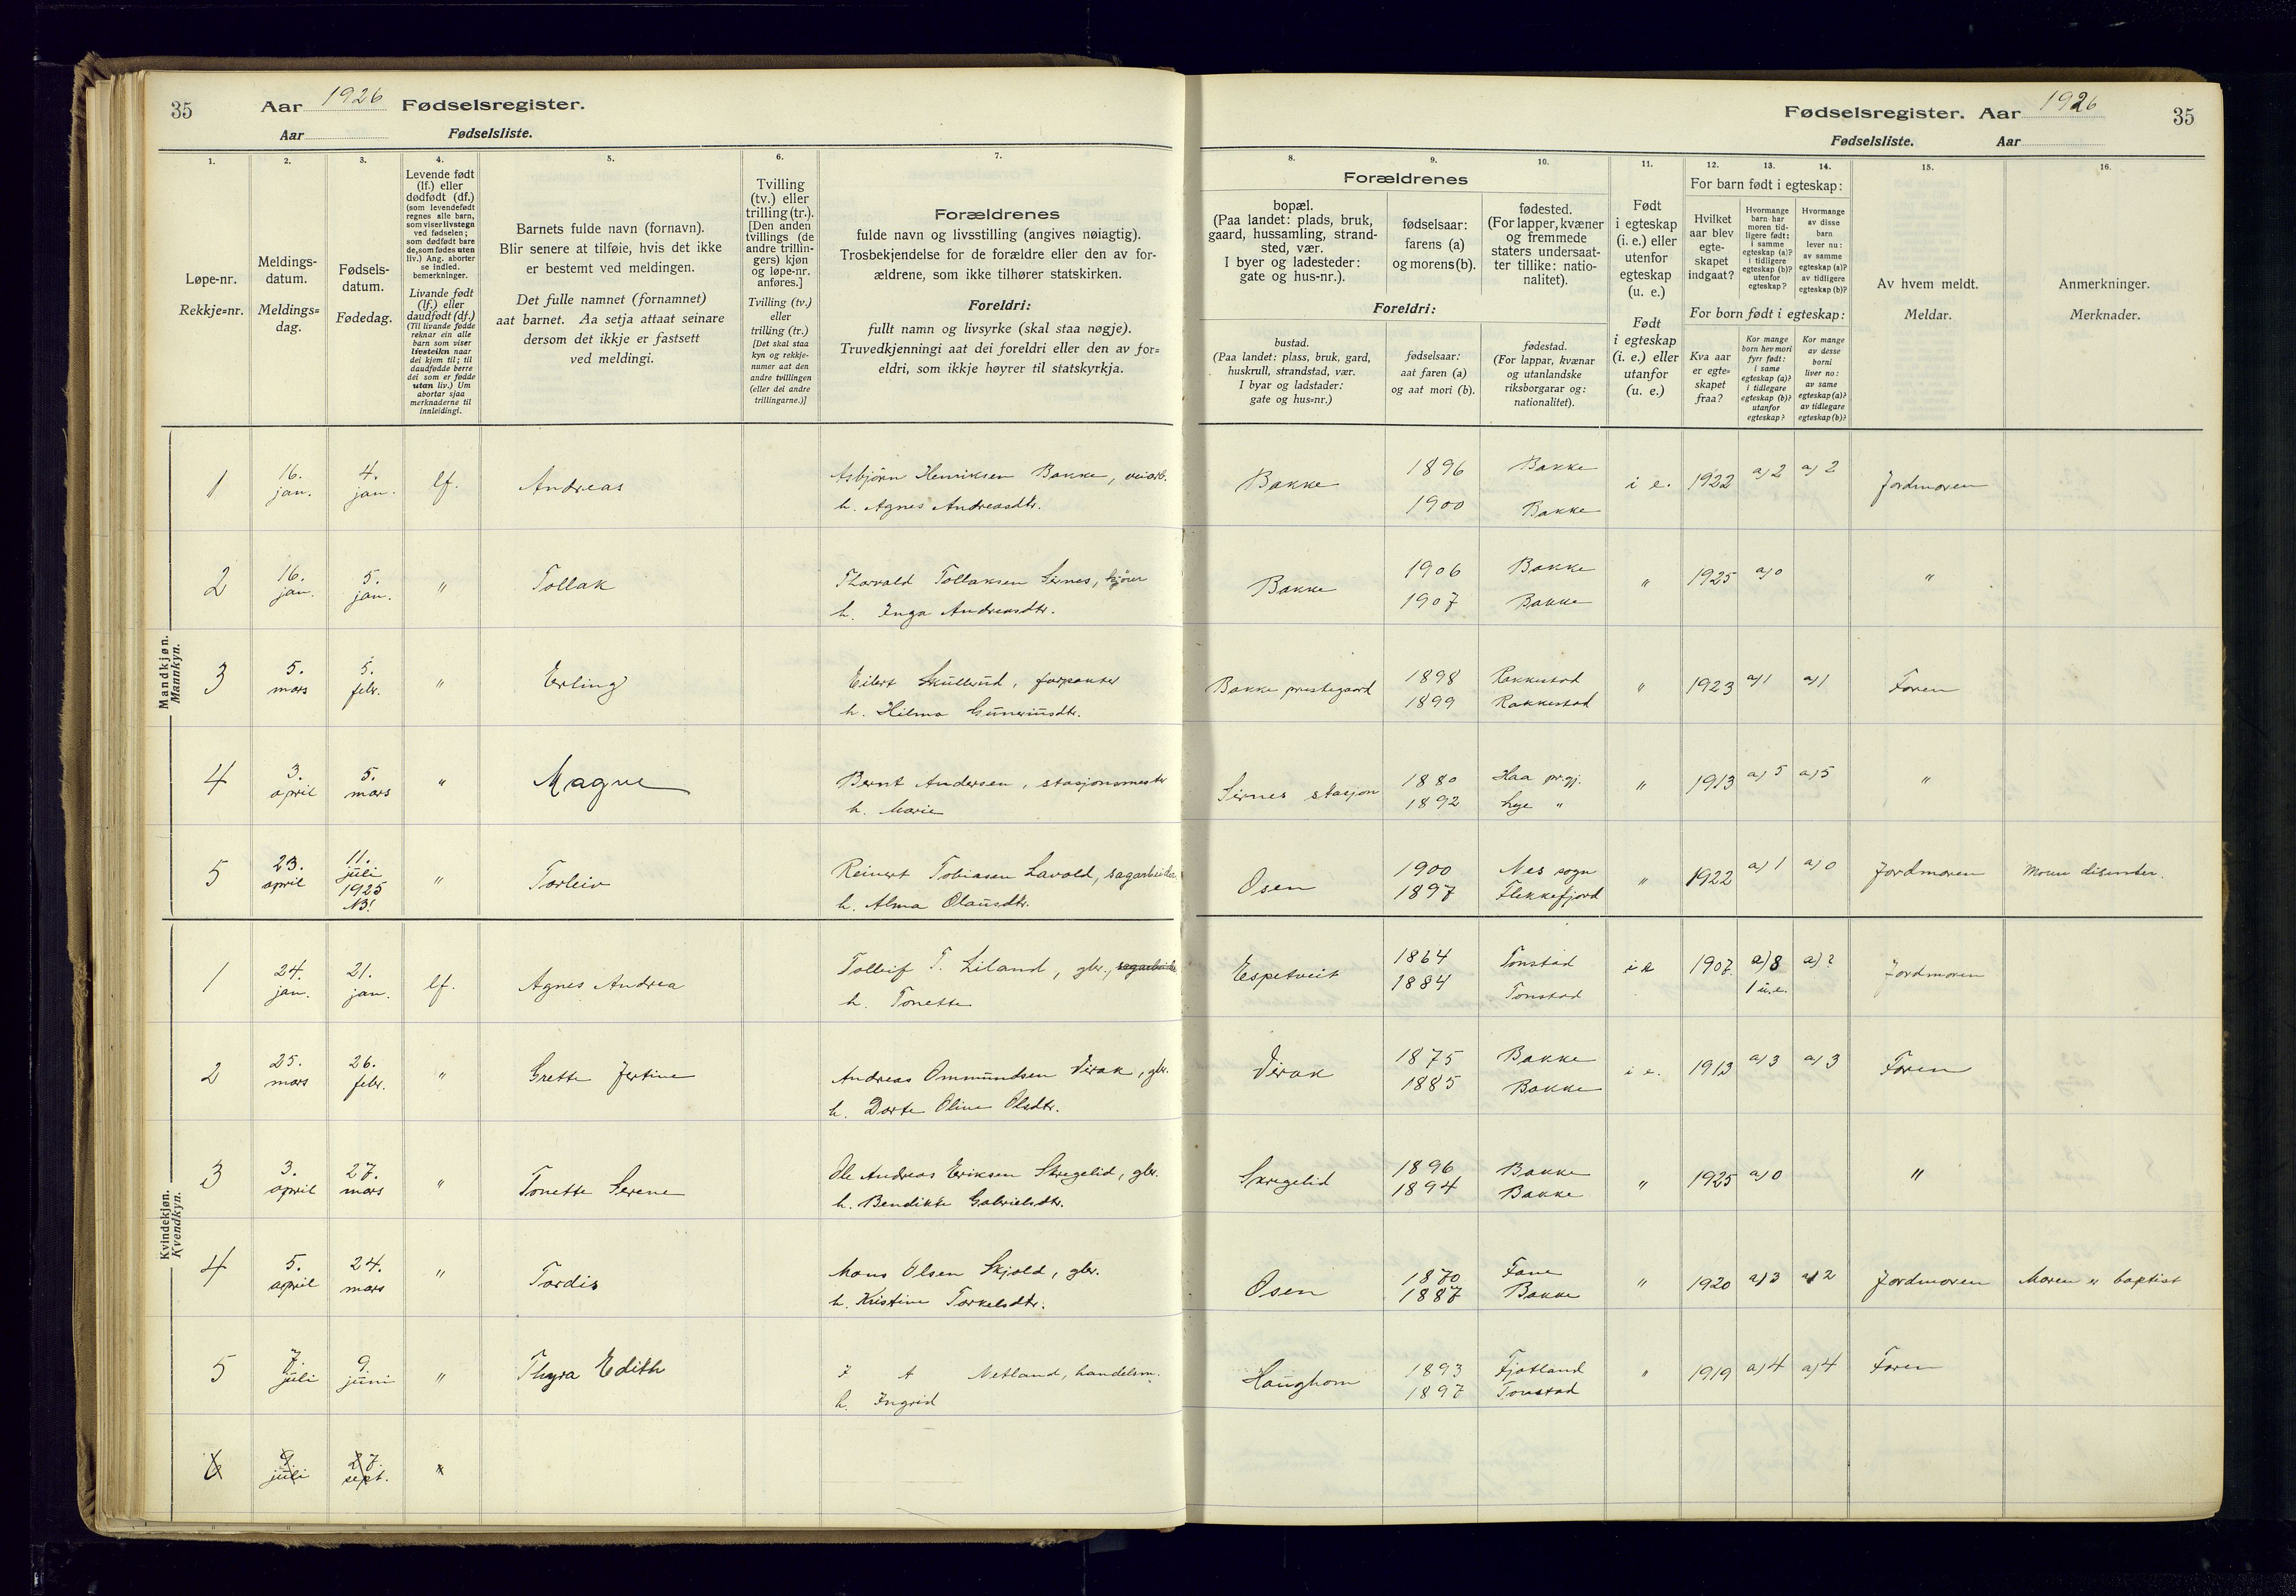 35 Aar 1926 Fødselsregister.
Aar Fødselsliste.
Fødselsregister. Aar 1926 35
Fødselsliste. Aar
1. 2. 3. 4. 5. 6. 7.
Løpe-nr.
Rekkje=nr.
Meldings-
datum.
Meldings=
dag.
Fødsels-
datum.
Fødedag.
Levende født
(lf.) eller
dødfødt (df.)
(som levendefødt
regnes alle barn,
som viser livstegn
ved fødselen;
som dødfødt bare
de, som fødes uten
liv.) Ang. aborter
se indled.
bemerkninger.
Livande født
(lf.) eller
daudfødt (df.)
(Til livande fødde
reknar ein alle
barn som viser
livsteikn naar
dei kjem til; til
daudfødde berre
dei som er fødde
utan liv.) Um
abortar sjaa
merknaderne til
innleidingi.
Barnets fulde navn (fornavn).
Blir senere at tilføie, hvis det ikke
er bestemt ved meldingen.
Det fulle namnet (fornamnet)
aat barnet. Aa setja attaat seinare
dersom det ikkje er fastsett
ved meldingi.
Tvilling
(tv.) eller
trilling (tr.).
[Den anden
tvillings (de
andre trillin-
gers) kjøn
og løpe-nr.
anføres.]
Tvilling (tv.)
eller
trilling (tr.)
[Det skal staa
kyn og rekkje-
numer aat den
andre tvillingen
(eller dei andre
trillingarne.)]
Forældrenes
fulde navn og livsstilling (angives nøiagtig).
Trosbekjendelse for de forældre eller den av for-
ældrene, som ikke tilhører statskirken.
Foreldri:
fullt namn og livsyrke (skal staa nøgje).
Truvedkjenningi aat dei foreldri eller den av for=
eldri, som ikkje høyrer til statskyrkja.
8. 9. 10. 11. 12. 13. 14. 15. 16.
Forældrenes
bopæl.
(Paa landet: plads, bruk,
gaard, hussamling, strand-
sted, vær.
I byer og ladesteder:
gate og hus-nr.).
fødselsaar:
farens (a)
og morens (b).
fødested.
(For lapper, kvæner
og fremmede
staters undersaat-
ter tillike: natio-
nalitet).
Foreldri:
bustad.
(Paa landet: plass, bruk, gard,
huskrull, strandstad, vær.
I byar og ladstader:
gate og hus=nr.)
fødselsaar:
aat faren (a)
og aat mori (b).
fødestad.
(For lappar, kvænar
og utanlandske
riksborgarar og:
nationalitet).
Født
i egteskap
(i. e.) eller
utenfor
egteskap
(u. e.)
Født
i egteskap
(i. e.) eller
utanfor
(u. e.)
For barn født i egteskap:
Hvilket
aar blev
egte-
skapet
indgaat?
Hvormange
barn har
moren tid-
ligere født:
i samme
egteskap (a)?
i tidligere
egteskap (b)?
utenfor
egteskap?
Hvormange
av disse
barn
lever nu:
av samme
egteskap (a)?
av tidligere
egteskap (b)?
For born født i egteskap:
Kva aar
er egte-
skapet
fraa?
Kor mange
born hev mori
fyrr født:
i same
egteskap (a)?
i tidlegare
egteskap (b)?
utanfor
egteskap?
Kor mange
av desse
borni
liver no:
av same
egteskap (a)?
av tidlegare
egteskap (b)?
Av hvem meldt.
Meldar.
Anmerkninger.
Merknader.
Mandkjøn.
Mannkyn.
1 16. jan. 4. jan. lf. Andreas Asbjørn Henriksen Bakke, veiarb. Bakke 1896 Bakke i e. 1922 a) 2 a) 2 Jordmoren
h. Agnes Andreasdtr. 1900 Bakke
2 16. jan. 5. jan. " Tollak Thorvald Tollaksen Sirnes, kjører Bakke 1906 Bakke " 1925 a) 0 "
h. Inga Andreasdtr. 1907 Bakke
3 5. mars 5. febr. " Erling Eilert Skullerud, forpakter Bakke prestegaard 1898 Rakkestad " 1923 a) 1 a) 1 Faren
h. Hilma Guneriusdtr. 1899 Rakkestad
4 3. april 5. mars " Magne Bernt Andersen, stasjonsmester Sirnes stasjon 1880 Haa pr.gj. " 1913 a) 5 a) 5 "
h. Marie 1892 Lye "
5 23. april 11. juli 1925 NB! " Torleiv Reinert Tobiasen Lavold, sagarbeider Osen 1900 Nes sogn " 1922 a) 1 a) 0 Jordmoren Moren disenter.
h. Alma Olausdtr. 1897 Flekkefjord
Kvindekjøn.
Kvendkyn.
1 24. jan. 21. jan. lf. Agnes Andrea Tolleif T. Liland, gbr., sagarbeider Espetveit 1864 Tonstad i e 1907. a) 8 a) ? Jordmoren
h. Tonette 1884 Tonstad 1 u.e.
2 25. mars 26. febr. " Grette Jertine Andreas Ommundsen Virak, gbr. Virak 1875 Bakke i e. 1913 a) 3 a) 3 Faren
h. Dorte Oline Olsdtr. 1885 Bakke
3 3. april 27. mars " Tonette Serene Ole Andreas Eriksen Skregelid, gbr. Skregelid 1896 Bakke " 1925 a) 0 "
h. Bendikte Gabrielsdtr. 1894 Bakke
4 5. april 24. mars " Tordis Mons Olsen Skjold, gbr. Osen 1870 Fane " 1920 a) 3 a) 2 Jordmoren Moren er baptist
h. Kristine Torkelsdtr. 1887 Bakke
5 7. juli 9. juni " Thyra Edith J A Netland, handelsm. Haughom 1893 Fjotland " 1919 a) 4 a) 4 Faren
h. Ingrid 1897 Tonstad
6 9. juli 27. sept. "